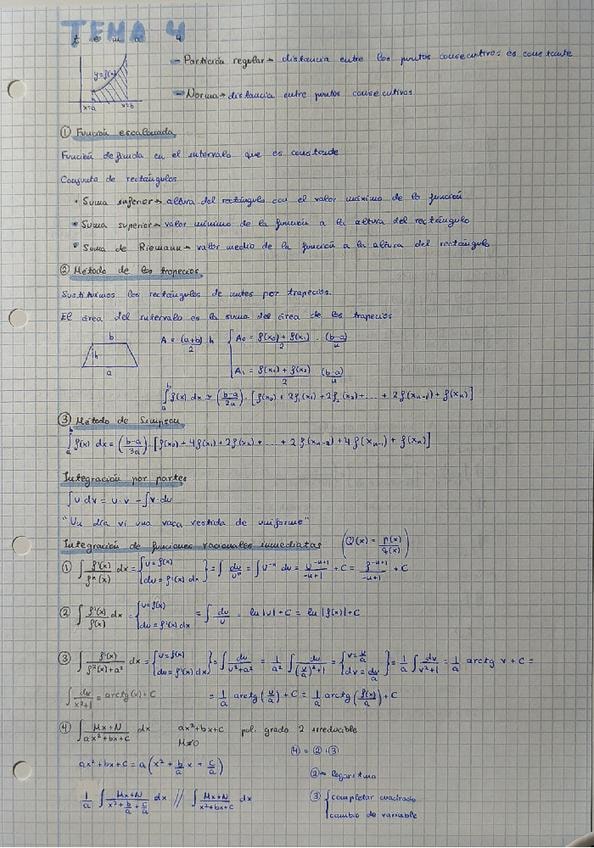 TEMA 4
t e m a 4
y=f(x)
x=a x=b
- Partición regular → distancia entre los puntos consecutivos es constante
- Norma → distancia entre puntos consecutivos
① Función escalonada
Función definida en el intervalo que es constante
Conjunto de rectángulos
• Suma inferior → altura del rectángulo con el valor mínimo de la función
• Suma superior → valor mínimo de la función a la altura del rectángulo
• Suma de Riemann → valor medio de la función a la altura del rectángulo
② Método de los trapecios
Sustituimos los rectángulos de antes por trapecios.
El área del intervalo es la suma del área de los trapecios
b h a A = (a+b)/2 · h { A₀ = f(x₀) + f(x₁)/2 · (b-a)/n
A₁ = f(x₁) + f(x₂)/2 (b-a)/n
∫ₐᵇ f(x) dx ≈ (b-a/2n) · [f(x₀) + 2f(x₁) + 2f(x₂) + ... + 2f(xₙ₋₁) + f(xₙ)]
③ Método de Simpson
∫ₐᵇ f(x) dx = (b-a/3n) · [f(x₀) + 4f(x₁) + 2f(x₂) + ... + 2f(xₙ₋₂) + 4f(xₙ₋₁) + f(xₙ)]
Integración por partes
∫u dv = u·v - ∫v·du
"Un día vi una vaca vestida de uniforme"
Integración de funciones racionales inmediatas (Q(x) = p(x)/q(x))
① ∫ f'(x)/fⁿ(x) dx = {u = f(x) du = f'(x) dx} = ∫ du/uⁿ = ∫ u⁻ⁿ du = u⁻ⁿ⁺¹/-n+1 + C = f⁻ⁿ⁺¹/-n+1 + C
② ∫ f'(x)/f(x) dx = {u = f(x) du = f'(x) dx = ∫ du/u = ln|u| + C = ln|f(x)| + C
③ ∫ f'(x)/f²(x)+a² dx = {u = f(x) du = f'(x) dx} = ∫ du/u²+a² = 1/a² ∫ du/(u/a)²+1 = {v = u/a dv = du/a} = 1/a ∫ dv/v²+1 = 1/a arctg v + C =
∫ du/x²+1 = arctg(x) + C = 1/a arctg(u/a) + C = 1/a arctg(f(x)/a) + C
④ ∫ Mx+N/ax²+bx+c dx ax²+bx+c pol. grado 2 irreducible
M≠0
④ = ② + ③
ax²+bx+c = a(x² + b/a x + c/a)
② → logaritmo
1/a ∫ Mx+N/x²+b/a+c/a dx // ∫ Mx+N/x²+bx+c dx ③ { completar cuadrado
cambio de variable